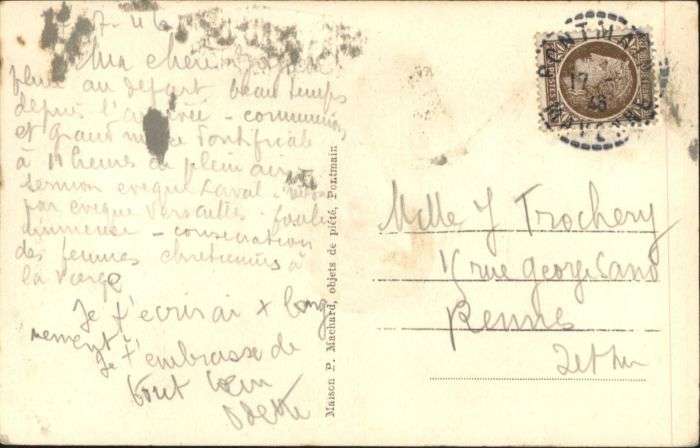 7. 46
Ma chère
pluie au départ beau temps
depuis l'arrivée – communion
et grand messe Pontifical
à 11 heures en plein air
sermon eveque Laval –
par eveque Versailles – foule
immense – consecration
des femmes chretiennes à
la Vierge
Je t'écrirai + long
nement
Je t'embrasse de
tout coeur
Odette
Maison P. Machard, objets de piété, Pontmain
PONTMAIN
17
46
MAYENNE
Melle Y Trochery
15 rue George Sand
Rennes